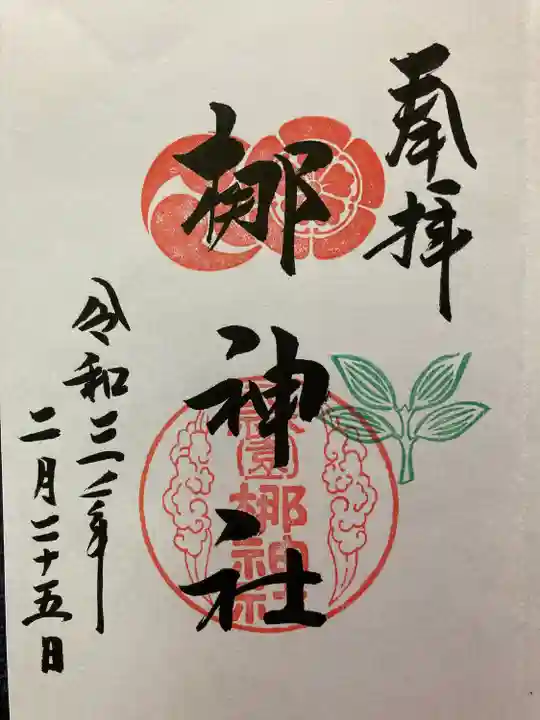 奉拝
梛神社
祇園梛神社
令和三年
二月二十五日